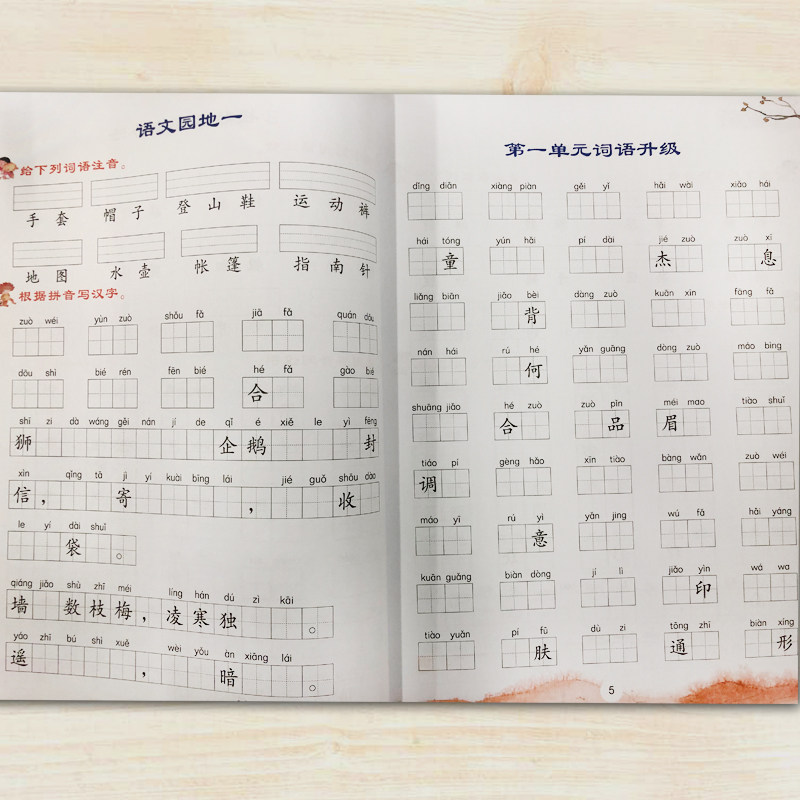 语文园地一
给下列词语注音。
手套 帽子 登山鞋 运动裤
地图 水壶 帐篷 指南针
根据拼音写汉字。
zuò wéi yùn zuò shǒu fǎ jiā fǎ quán dōu
dōu shì bié rén fēn bié hé fǎ gào bié
合
shī zi dà wáng gěi nán jí de qǐ é xiě le yì fēng
狮 企鹅 封
xìn qǐng tā jì yí kuài bīng lái jié guǒ shōu dào
信， 寄 ， 收
le yí dài shuǐ
袋 。
qiáng jiǎo shù zhī méi líng hán dú zì kāi
墙 数枝梅，凌寒独 。
yáo zhī bú shì xuě wèi yǒu àn xiāng lái
遥 ， 暗 。
第一单元词语升级
dǐng diǎn xiàng piàn gěi yǐ hǎi wài xiǎo hái
hái tóng yún hǎi pí dài jié zuò zuò xī
童 杰 息
liǎng biān jiāo bèi dàng zuò kuān xìn fāng fǎ
背
nán hái rú hé yǎn guāng dòng zuò máo bìng
何
shuāng jiǎo hé zuò zuò pǐn méi mao tiào shuǐ
合 品 眉
tiáo pí gèng hǎo xīn tiào bàng wǎn zuò wéi
调
máo yī rú yì yǎn jing wú fǎ hǎi yáng
意
kuān guǎng biàn dòng jí lì jiǎo yìn wá wa
印
tiào yuǎn pí fū dù zi tōng zhī biàn xíng
肤 通 形
5